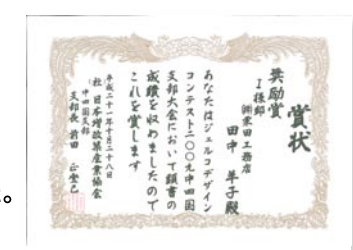 賞状
奨励賞
I様邸
㈱東田工務店
田中 羊子殿
あなたはジェルコデザイン
コンテスト二〇〇九中四国
支部大会において頭書の
成績を収めましたので
これを賞します
平成二十一年十月二十八日
(社)日本増改築産業協会
中四国支部
支部長 前田
。